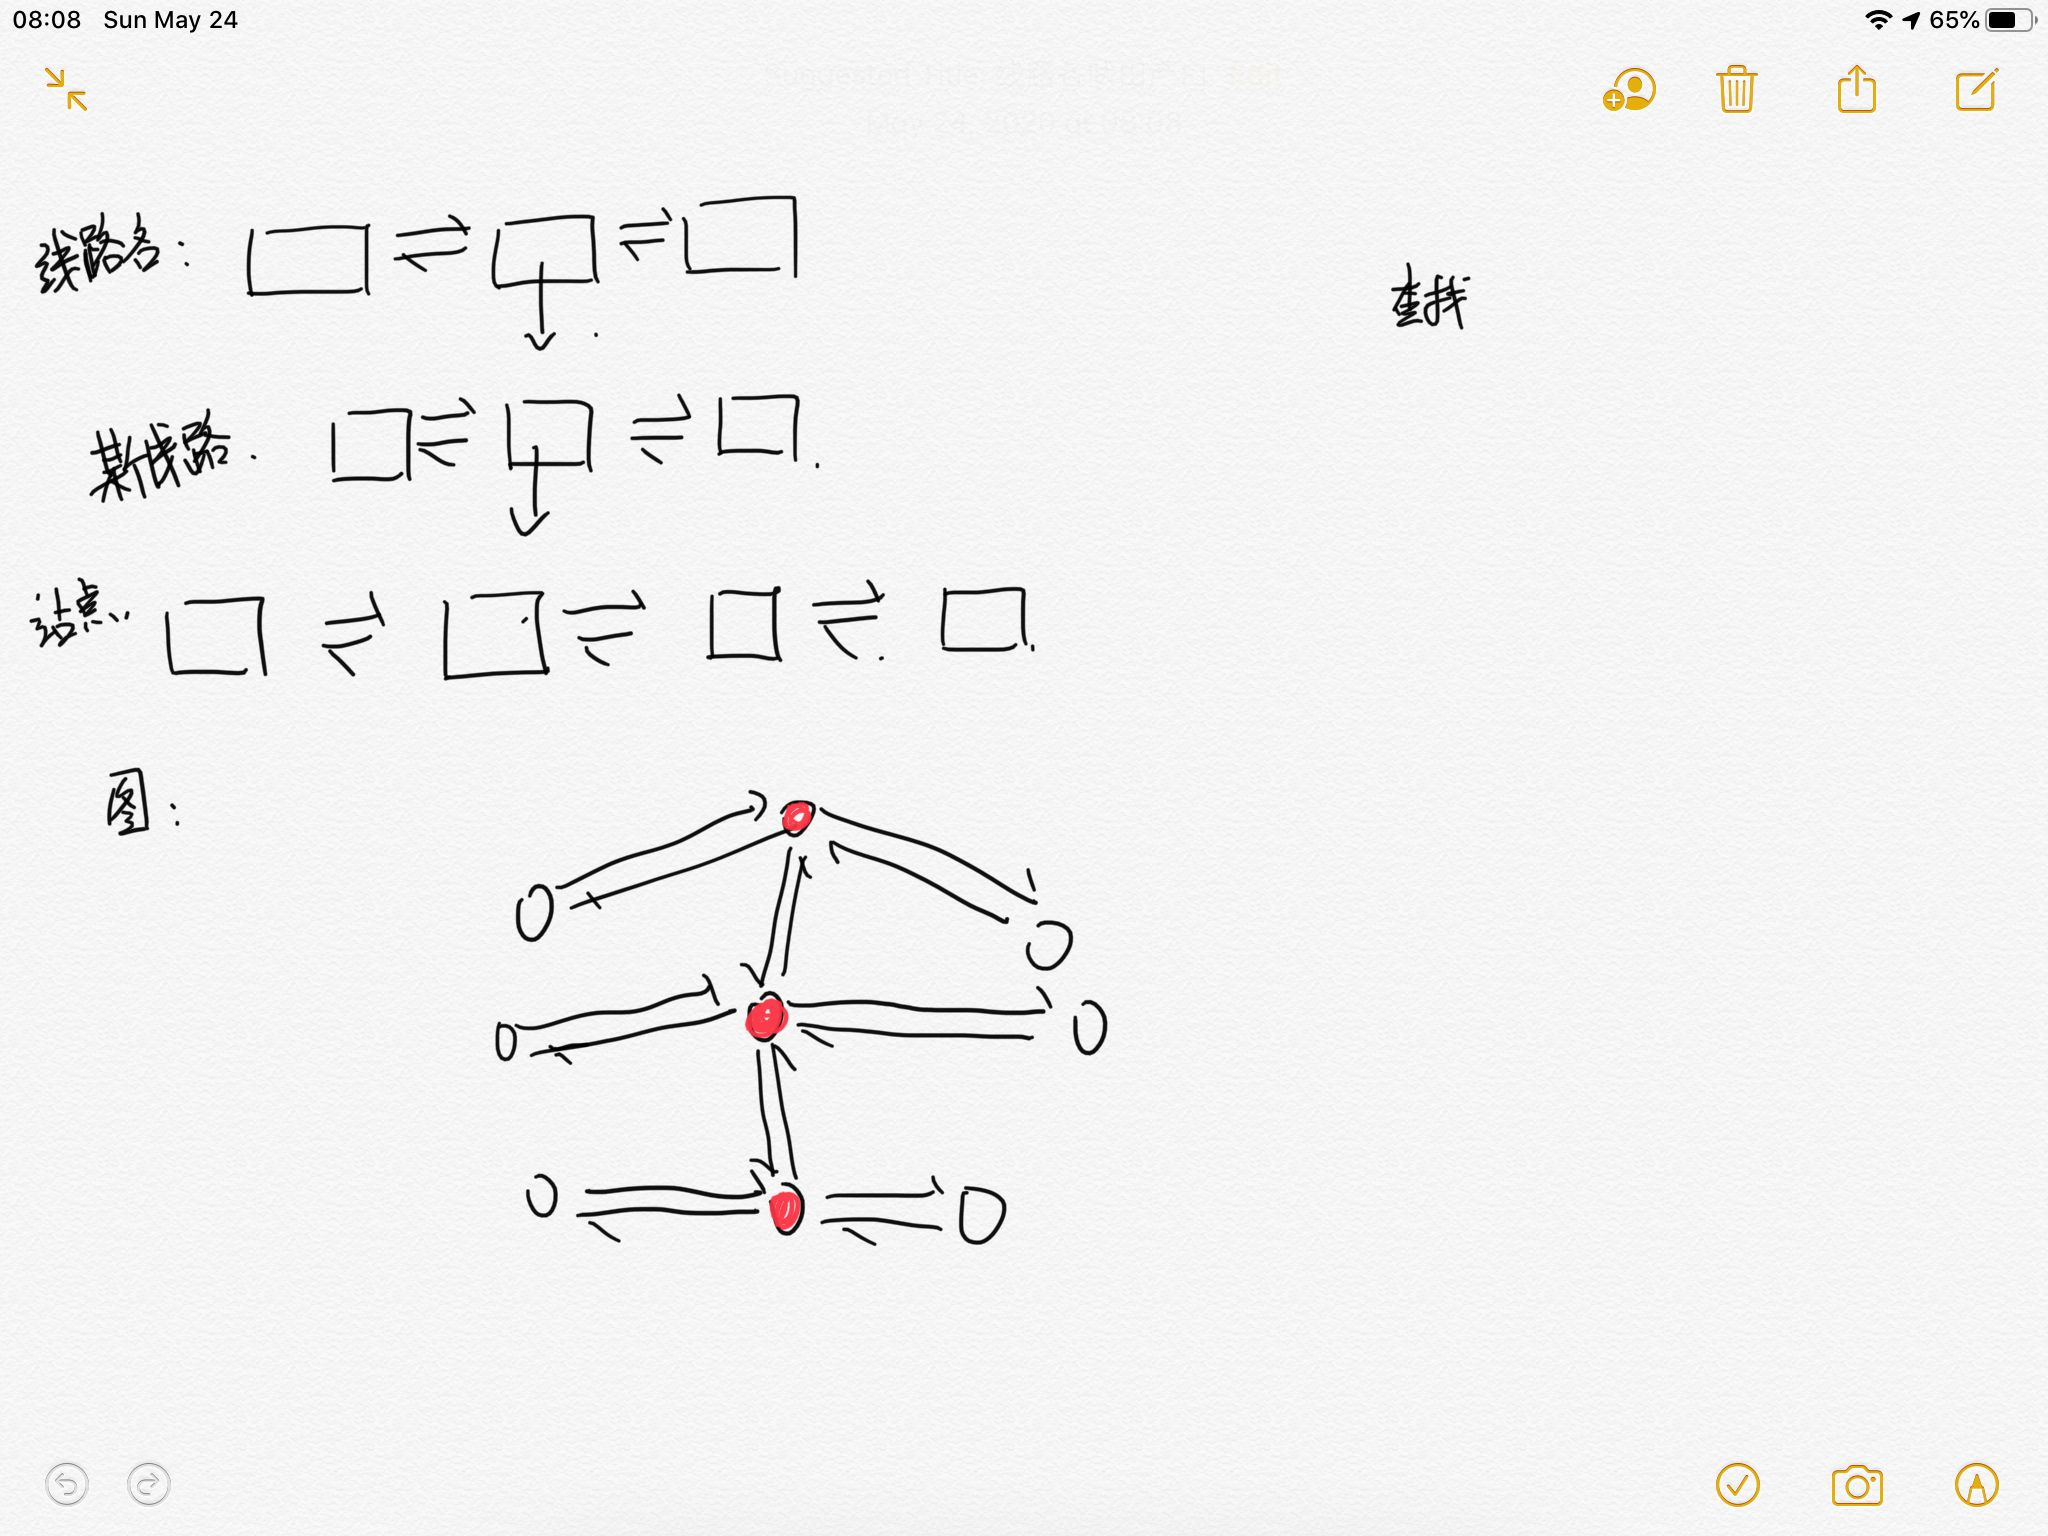 08:08 Sun May 24 65%
线路名：
查找
某线路.
站点.
图：